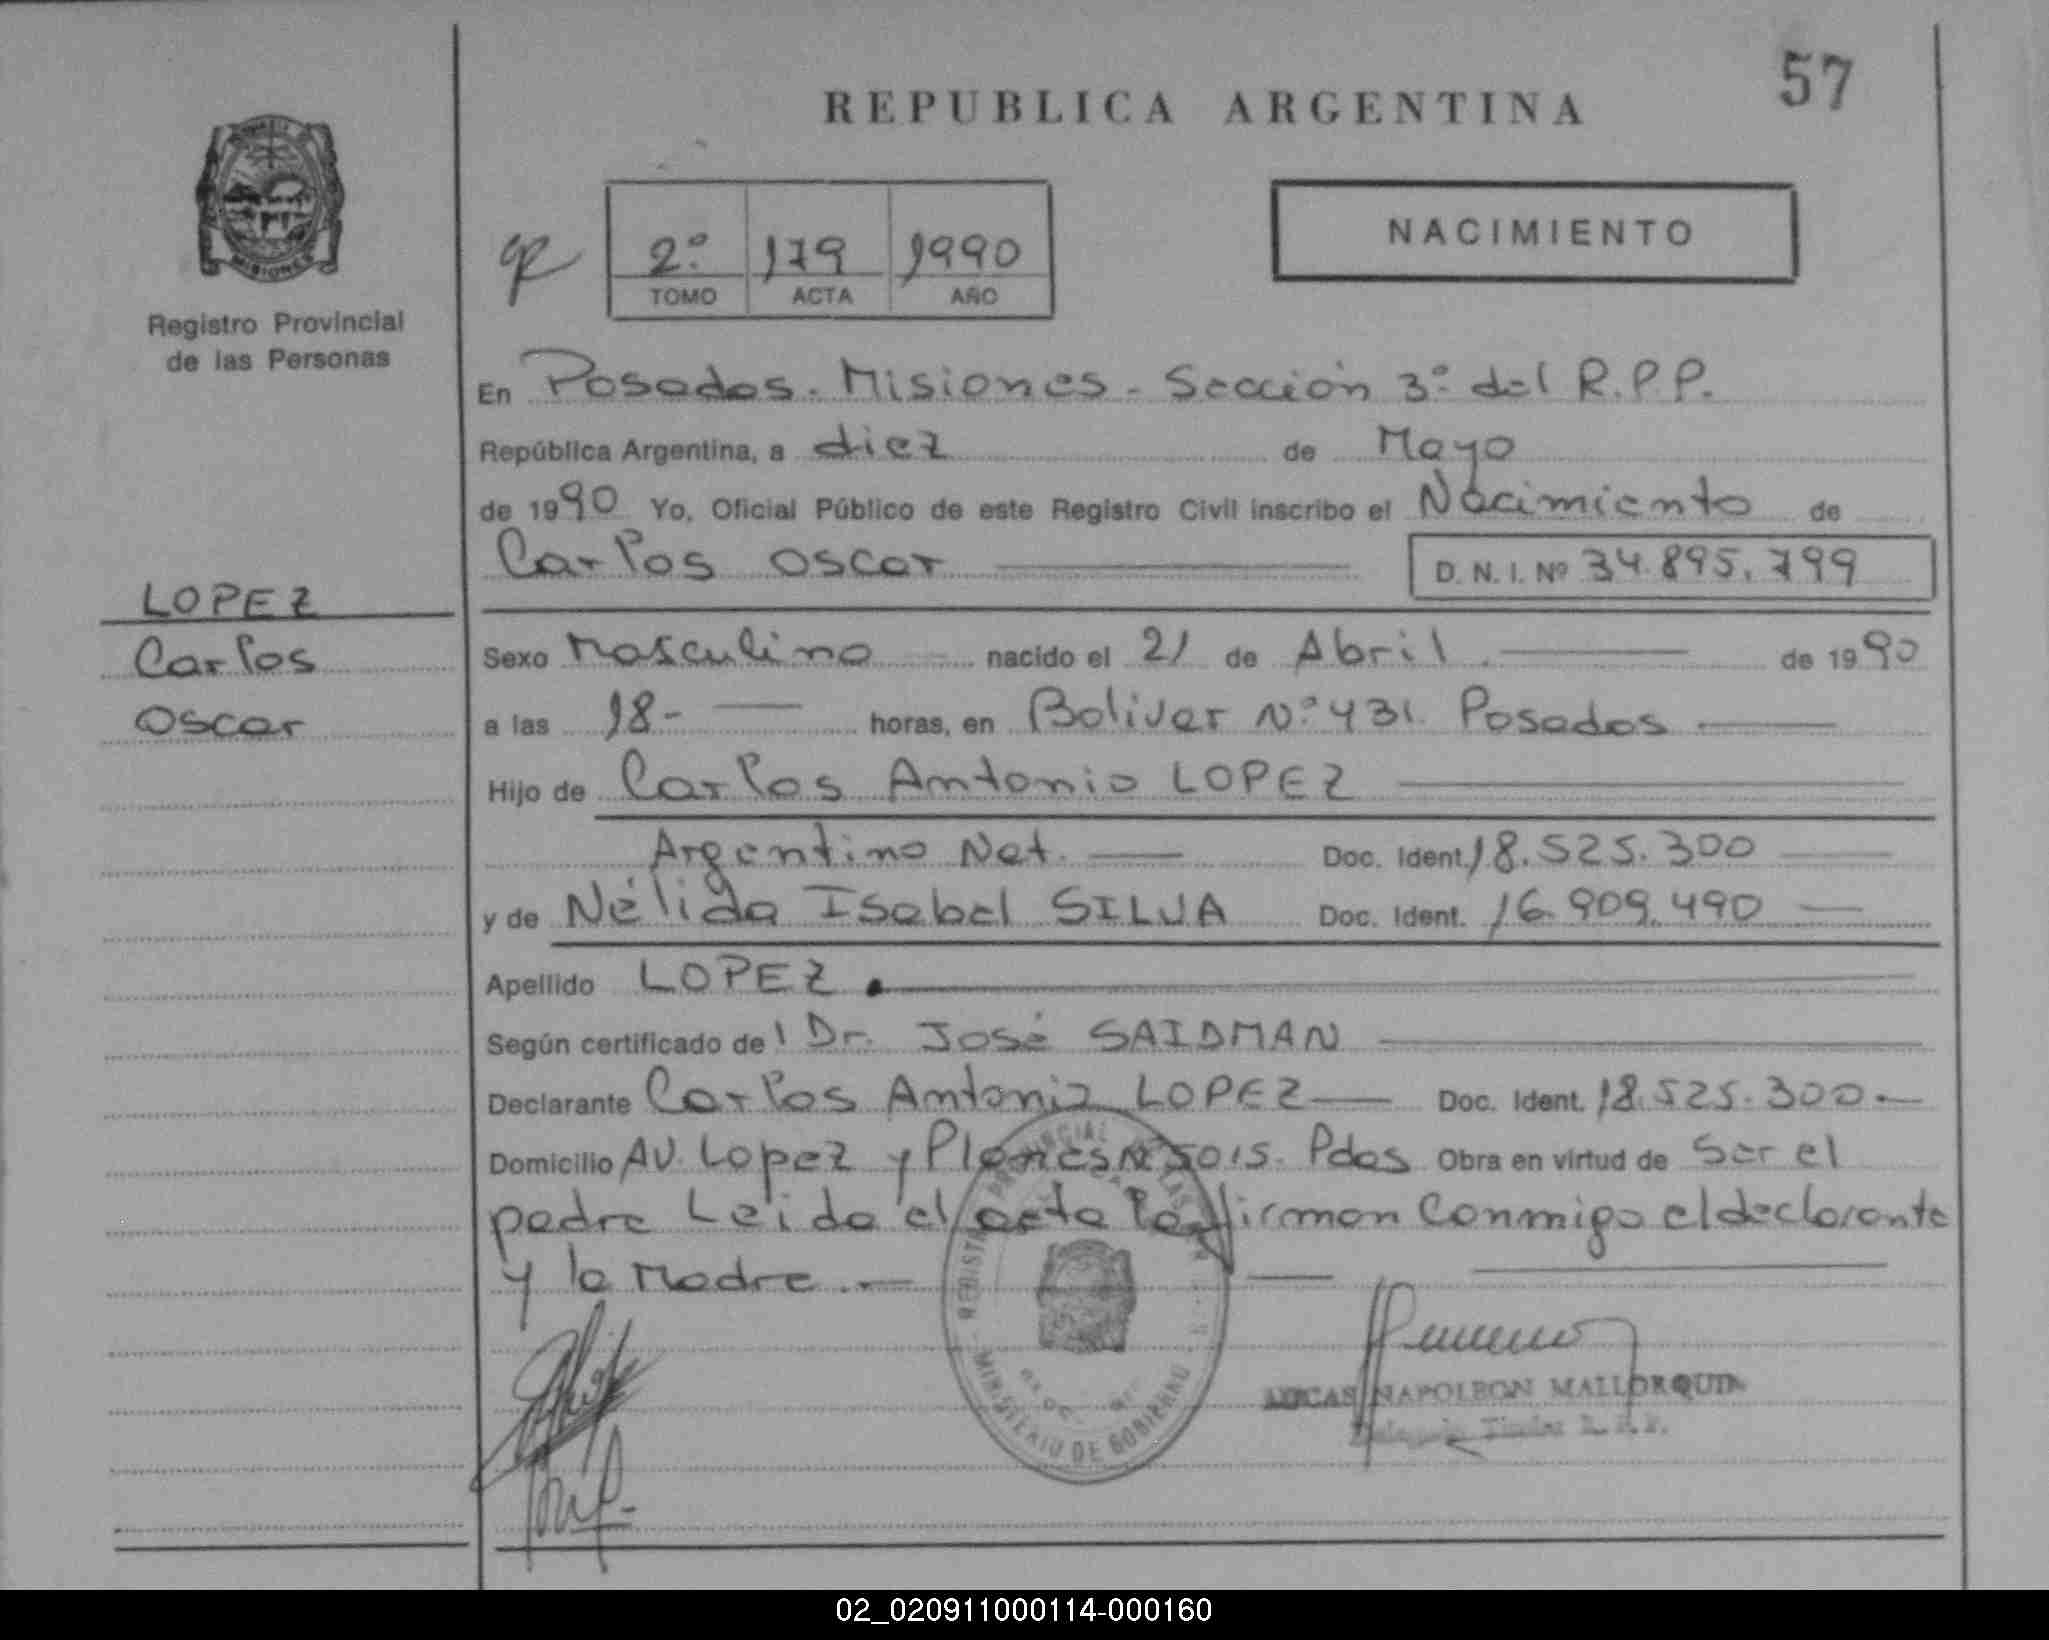 57
REPUBLICA ARGENTINA
MISIONES
Registro Provincial
de las Personas
2º 179 1990
TOMO ACTA AÑO
NACIMIENTO
En Posadas. Misiones - Sección 3º del R.P.P.
República Argentina, a diez de Mayo
de 1990 Yo, Oficial Público de este Registro Civil inscribo el Nacimiento de
Carlos Oscar D. N. I. Nº 34.895.799
LOPEZ
Carlos
Oscar
Sexo Masculino nacido el 21 de Abril. de 1990
a las 18- horas, en Bolivar Nº 431. Posadas
Hijo de Carlos Antonio LOPEZ
Argentino Nat. Doc. Ident. 18.525.300
y de Nélida Isabel SILVA Doc. Ident. 16.909.490
Apellido LOPEZ.
Según certificado del Dr. José SAIDMAN
Declarante Carlos Antonio LOPEZ Doc. Ident. 18.525.300.-
Domicilio AV. Lopez y Planes Nº 5015. Pdas Obra en virtud de Ser el
padre Leida el acta la firman Conmigo el declarante
y la Madre.-
REGISTRO PROVINCIAL DE LAS
MINISTERIO DE GOBIERNO
LUCAS NAPOLEON MALLORQUIN
Titular R. P. P.
02_020911000114-000160